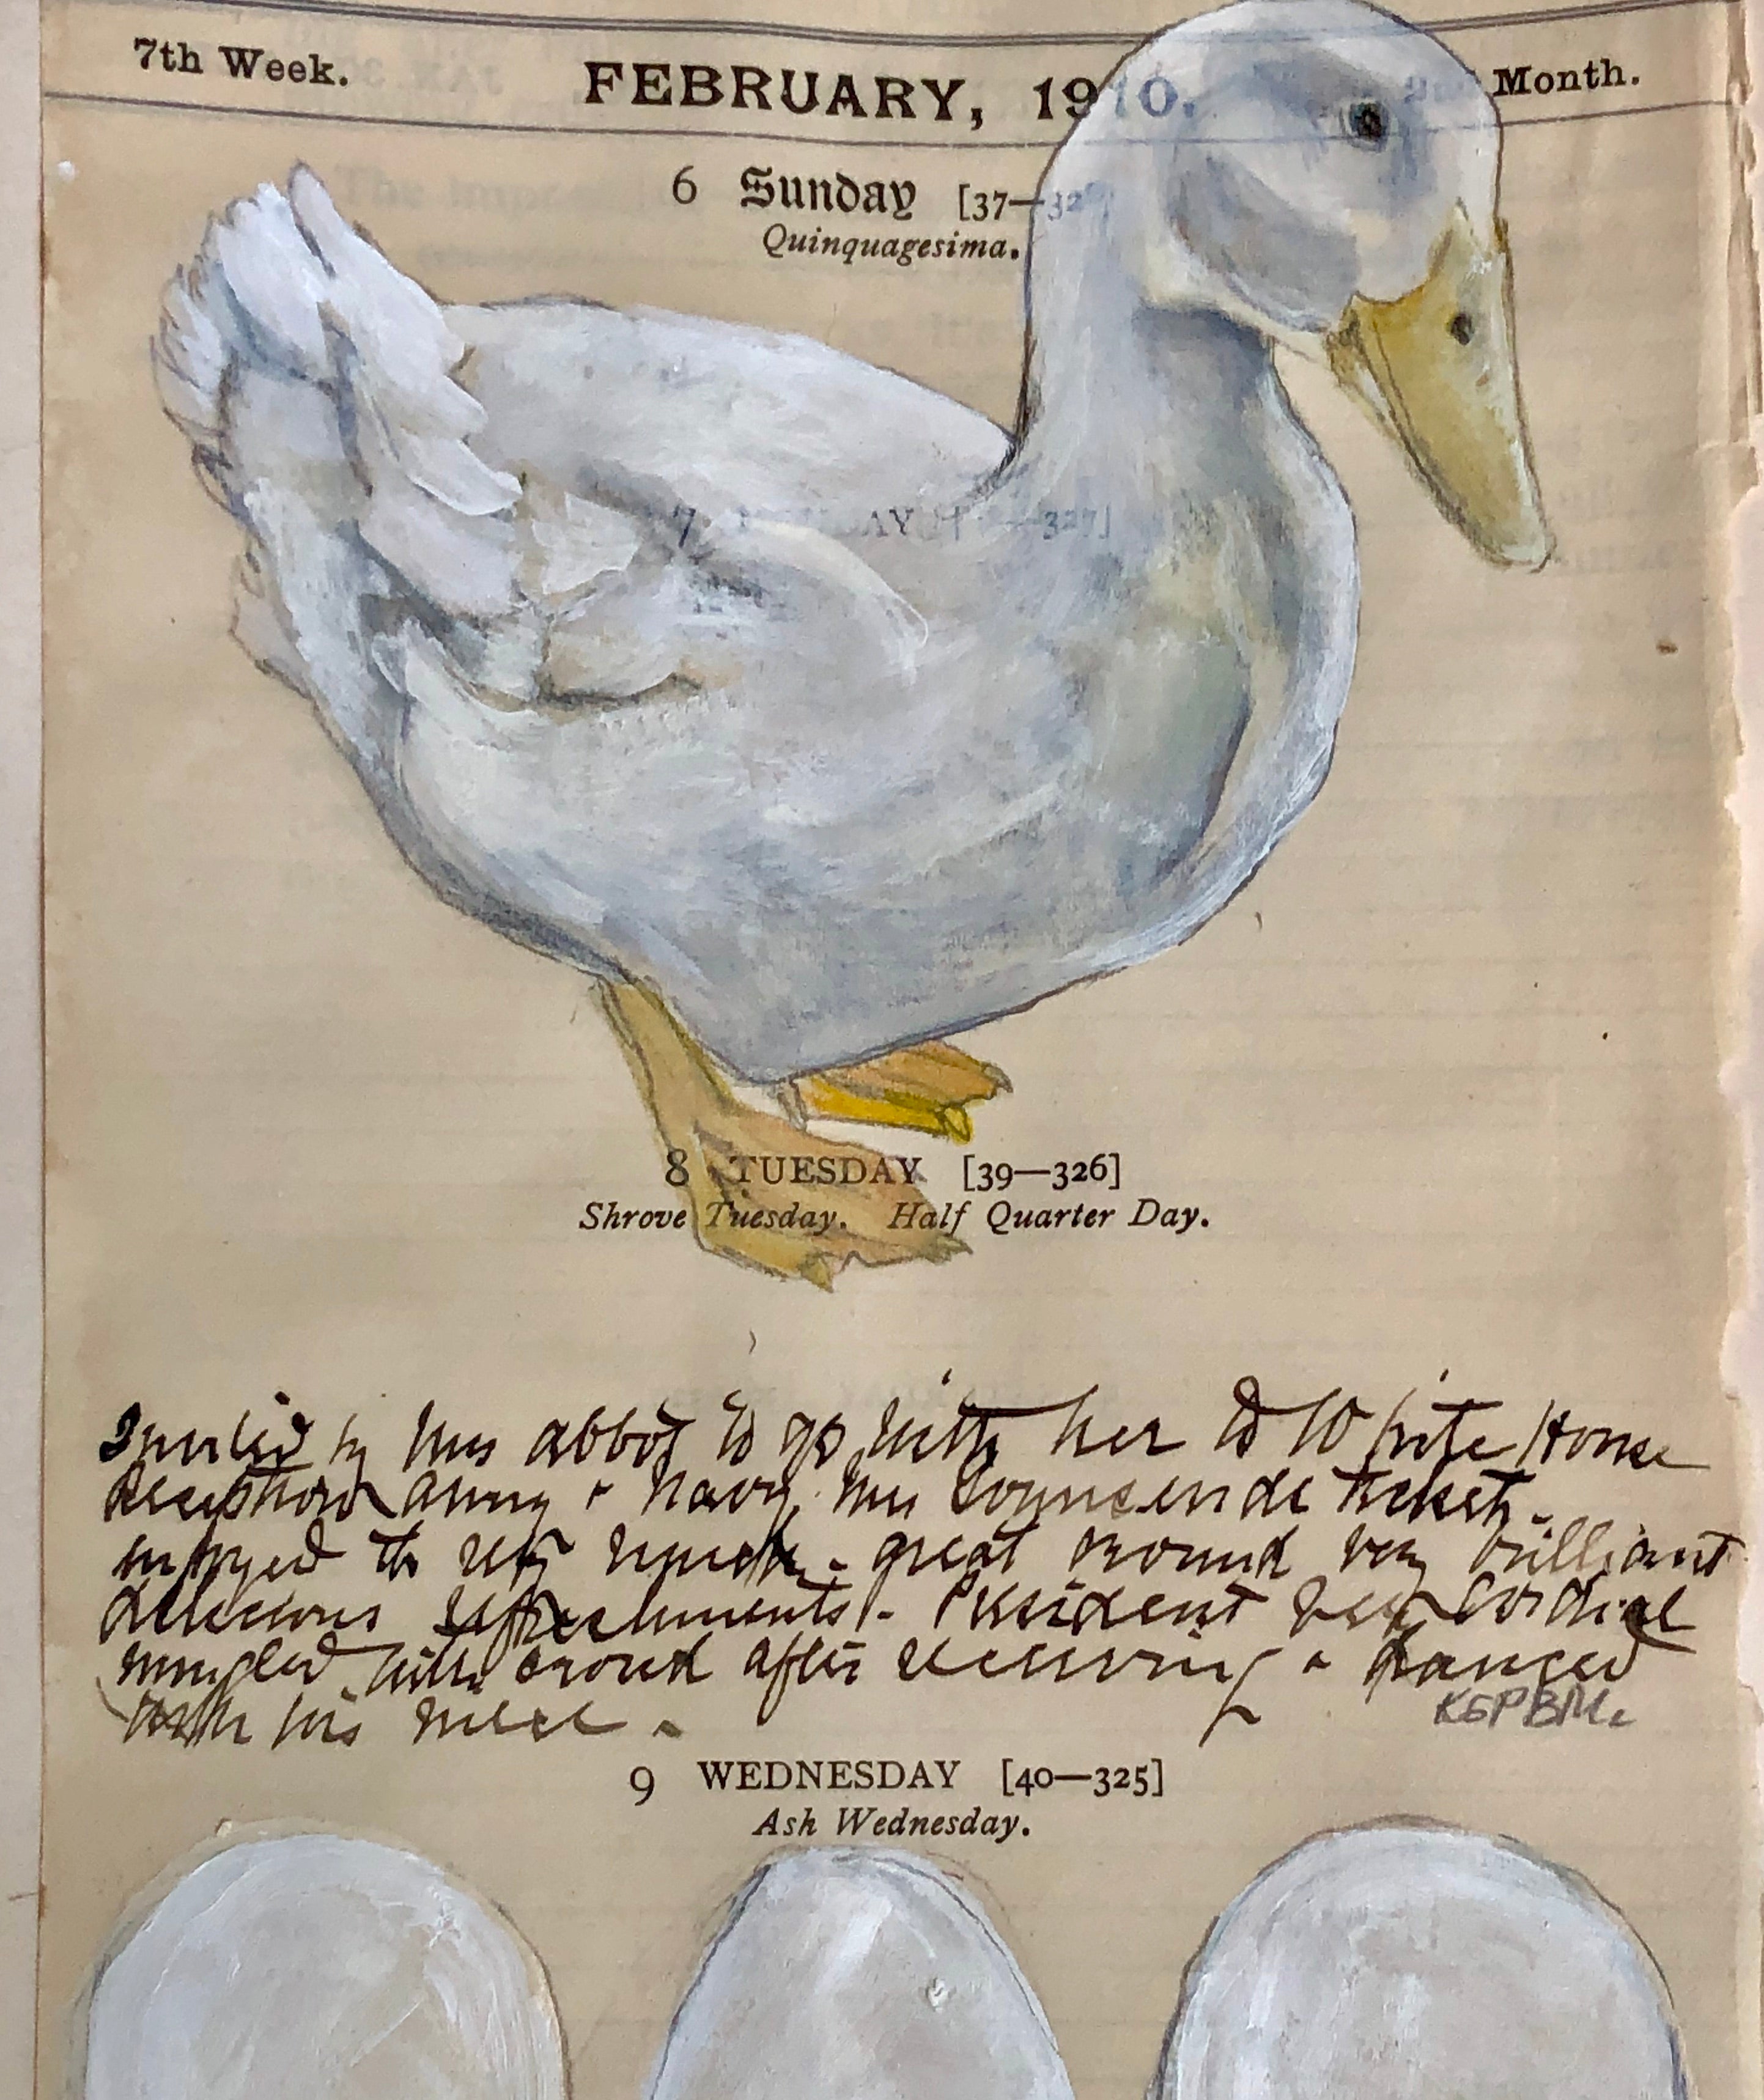 7th Week. FEBRUARY, 1910. 2nd Month.
6 Sunday [37—328]
Quinquagesima.
7 AY [ —327]
8 TUESDAY [39—326]
Shrove Tuesday. Half Quarter Day.
Invited by Mrs Abbot to go with her to White House
Reception Army + Navy, Mrs tickets.
enjoyed it very much - great crowd very brilliant
delicious refreshments - President very cordial
mingled with crowd after receiving & danced
with his niece -
KGPBM.
9 WEDNESDAY [40—325]
Ash Wednesday.